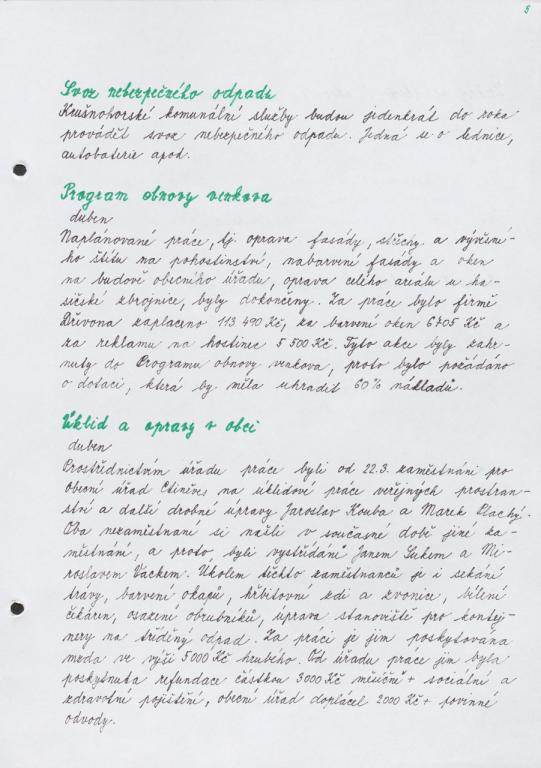 5
Svoz nebezpečného odpadu
Krušnohorské komunální služby budou jedenkrát do roka
provádět svoz nebezpečného odpadu. Jedná se o lednice,
autobaterie apod.
Program obnovy venkova
duben
Naplánované práce, tj. oprava fasády, střechy a vývěsné-
ho štítu na pohostinství, nabarvení fasády a oken
na budově obecního úřadu, oprava celého areálu u ha-
sičské zbrojnice, byly dokončeny. Za práce bylo firmě
Dřevona zaplaceno 113 490 Kč, za barvení oken 6705 Kč a
za reklamu na hostinec 5 500 Kč. Tyto akce byly zahr-
nuty do Programu obnovy venkova, proto bylo požádáno
o dotaci, která by měla uhradit 60% nákladů.
Úklid a opravy v obci
duben
Prostřednictvím úřadu práce byli od 22.3. zaměstnáni pro
obecní úřad Ctiněves na úklidové práce veřejných prostran-
ství a další drobné úpravy Jaroslav Kouba a Marek Plachý.
Oba nezaměstnaní si našli v současné době jiné za-
městnání, a proto byli vystřídáni Janem Sukem a Mi-
roslavem Vackem. Úkolem těchto zaměstnanců je i sekání
trávy, barvení okapů, hřbitovní zdi a zvonice, bílení
čekáren, osazení obrubníků, úprava stanoviště pro kontej-
nery na tříděný odpad. Za práci je jim poskytována
mzda ve výši 5000 Kč hrubého. Od úřadu práce jim byla
poskytnuta refundace částkou 3000 Kč měsíčně + sociální a
zdravotní pojištění, obecní úřad doplácel 2000 Kč + povinné
odvody.